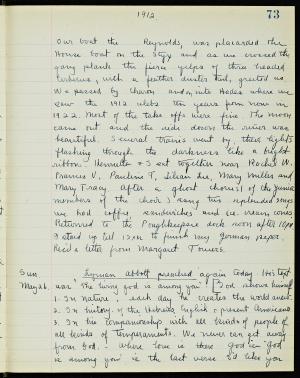 1912
73
Our boat the Reynolds, was placarded the
House boat on the Styx and as we crossed the
gang plank the fierce yelps of three headed
Cerberus, with a feather duster tail, greeted us
We passed by Charon and, into Hades where we
saw the 1912 ulets ten years from now in
1922. Most of the take offs were fine. The moon
came out and the ride down the river was
beautiful. Several trains went by their lights
flashing through the darkness like a bright
ribbon. Henrietta & I sat together near Rachel W.
Frances V, Pauline T, Lilian Lee, Mary Miller and
Mary Tracy. After a ghost chorus of the Junior
members of the choir & sang two splendid songs
we had coffee, sandwiches and ice cream cones
Returned to the Poughkeepsie dock soon after 10 P.M.
I stayed up till 12.30 to finish my German paper.
Rec'd a letter from Margaret Towers.
Sun
May 26.
Lyman Abbott preached again today. His text
was "The living God is among you". God shows himself
1. In nature, each day he creates the world anew.
2. In history, of the Hebrews, English & present Americans
3. In the companionship with all kinds of people of
all kinds of temperaments. We never can get away
from God. "Where love is there God is" "God
is among you" is the last verse I'd like you